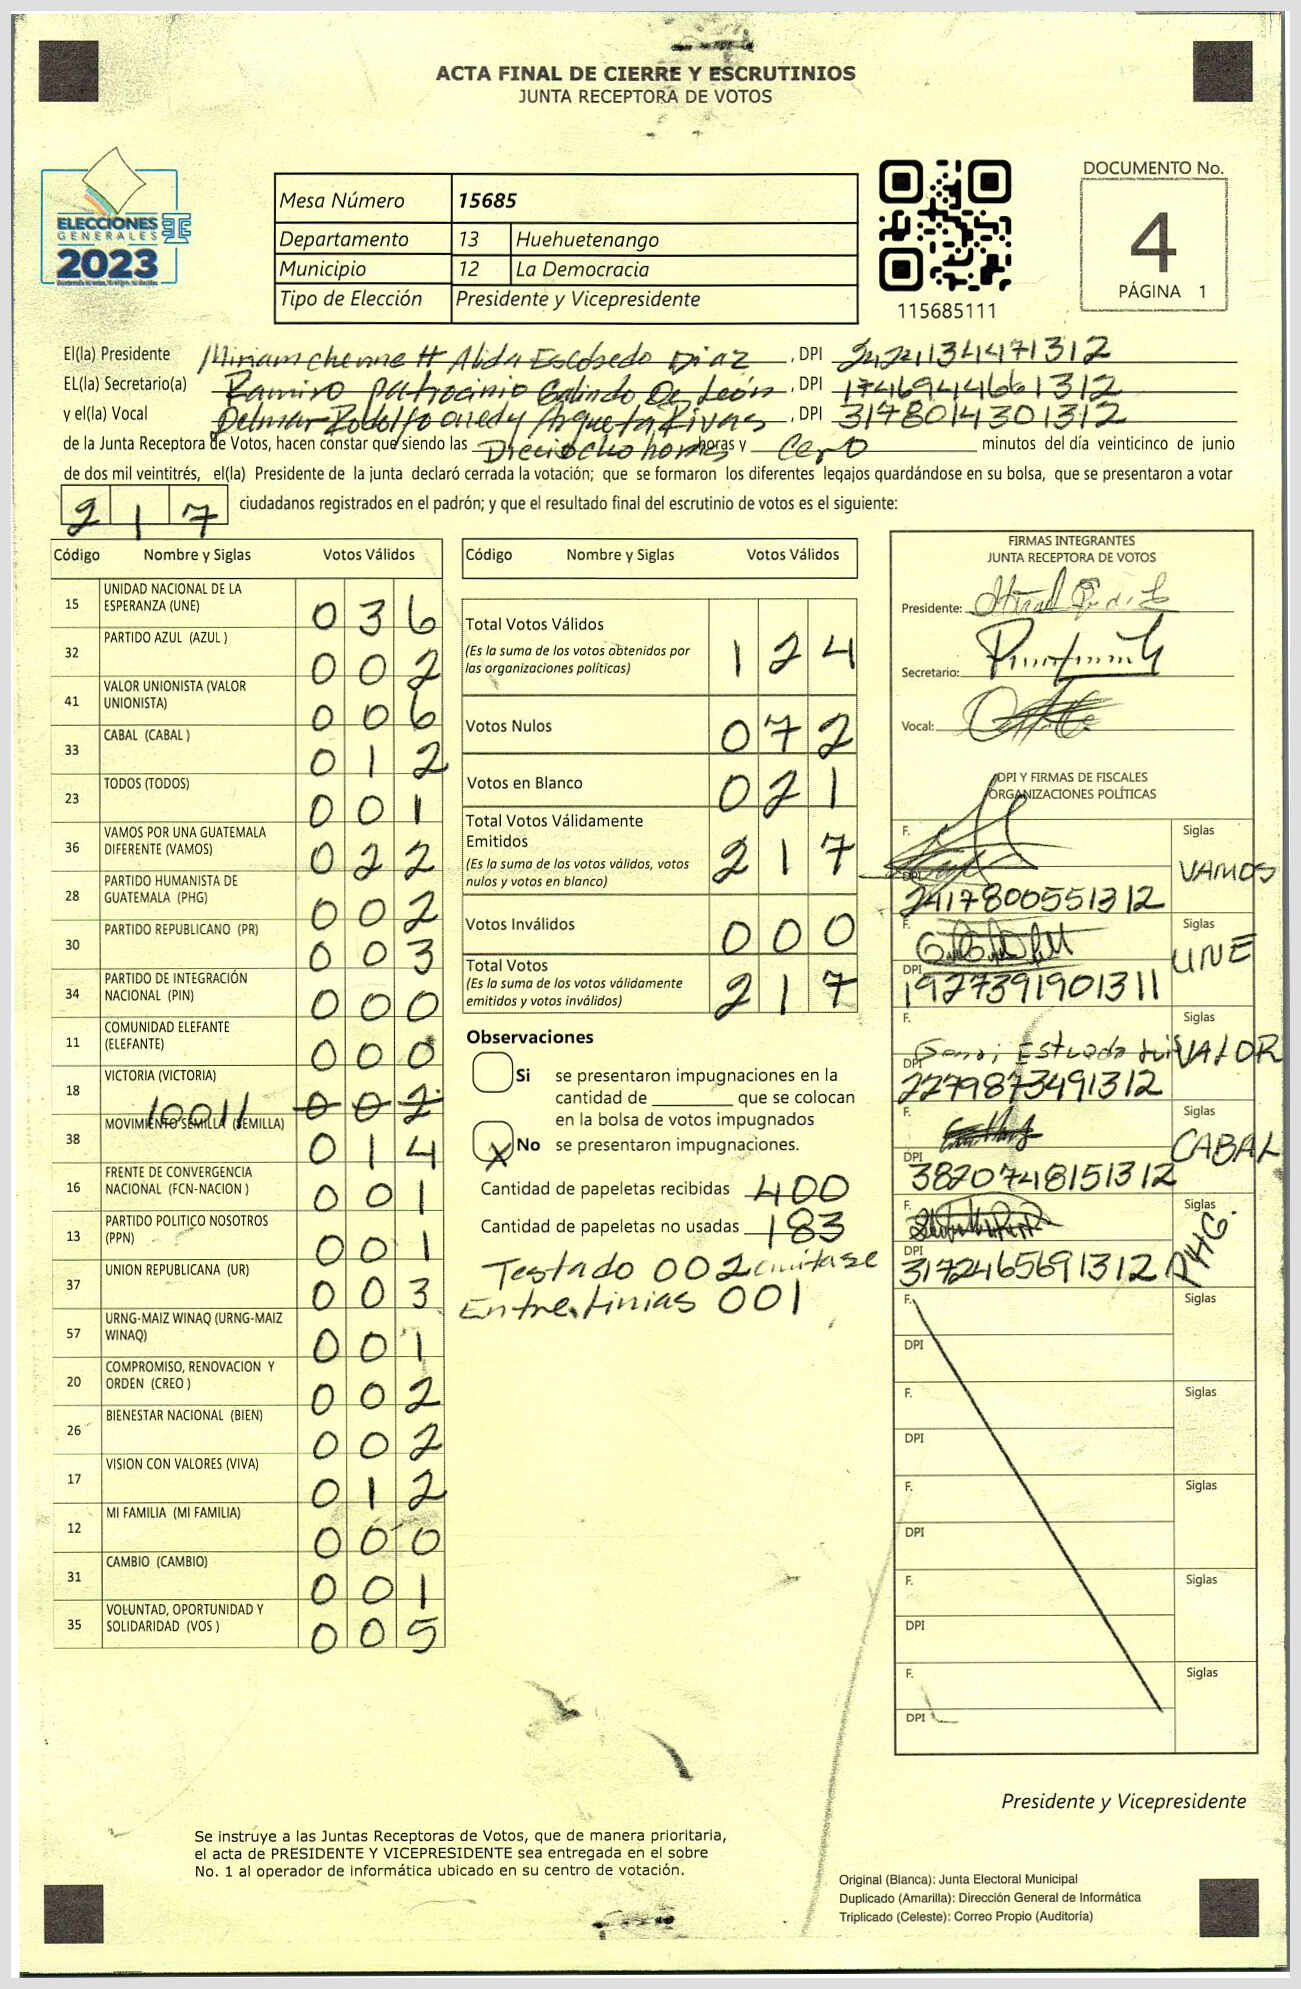 ACTA FINAL DE CIERRE Y ESCRUTINIOS
JUNTA RECEPTORA DE VOTOS
ELECCIONES
GENERALES
2023
Mesa Número 15685
Departamento 13 Huehuetenango
Municipio 12 La Democracia
Tipo de Elección Presidente y Vicepresidente
115685111
DOCUMENTO No.
4
PÁGINA 1
El(la) Presidente Alida Escobedo Diaz , DPI
EL(la) Secretario(a) Ramiro patrocinio Galindo De León , DPI 1746944661312
y el(la) Vocal Delmar Rodolfo Argueta Rivas , DPI 3178014301312
de la Junta Receptora de Votos, hacen constar que siendo las Dieciocho horas horas y cero minutos del día veinticinco de junio
de dos mil veintitrés, el(la) Presidente de la junta declaró cerrada la votación; que se formaron los diferentes legajos guardándose en su bolsa, que se presentaron a votar
217 ciudadanos registrados en el padrón; y que el resultado final del escrutinio de votos es el siguiente:
Código Nombre y Siglas Votos Válidos
15 UNIDAD NACIONAL DE LA ESPERANZA (UNE) 036
32 PARTIDO AZUL (AZUL ) 002
41 VALOR UNIONISTA (VALOR UNIONISTA) 006
33 CABAL (CABAL ) 012
23 TODOS (TODOS) 001
36 VAMOS POR UNA GUATEMALA DIFERENTE (VAMOS) 022
28 PARTIDO HUMANISTA DE GUATEMALA (PHG) 002
30 PARTIDO REPUBLICANO (PR) 003
34 PARTIDO DE INTEGRACIÓN NACIONAL (PIN) 000
11 COMUNIDAD ELEFANTE (ELEFANTE) 000
18 VICTORIA (VICTORIA) 002
/001/
38 MOVIMIENTO SEMILLA (SEMILLA) 014
16 FRENTE DE CONVERGENCIA NACIONAL (FCN-NACION ) 001
13 PARTIDO POLITICO NOSOTROS (PPN) 001
37 UNION REPUBLICANA (UR) 003
57 URNG-MAIZ WINAQ (URNG-MAIZ WINAQ) 001
20 COMPROMISO, RENOVACION Y ORDEN (CREO ) 002
26 BIENESTAR NACIONAL (BIEN) 002
17 VISION CON VALORES (VIVA) 012
12 MI FAMILIA (MI FAMILIA) 000
31 CAMBIO (CAMBIO) 001
35 VOLUNTAD, OPORTUNIDAD Y SOLIDARIDAD (VOS ) 005
Código Nombre y Siglas Votos Válidos
Total Votos Válidos 124
(Es la suma de los votos obtenidos por
las organizaciones políticas)
Votos Nulos 072
Votos en Blanco 021
Total Votos Válidamente
Emitidos 217
(Es la suma de los votos válidos, votos
nulos y votos en blanco)
Votos Inválidos 000
Total Votos 217
(Es la suma de los votos válidamente
emitidos y votos inválidos)
Observaciones
Si se presentaron impugnaciones en la
cantidad de que se colocan
en la bolsa de votos impugnados
X No se presentaron impugnaciones.
Cantidad de papeletas recibidas 400
Cantidad de papeletas no usadas 183
Testado 002 omitase
Entre linias 001
FIRMAS INTEGRANTES
JUNTA RECEPTORA DE VOTOS
Presidente:
Secretario:
Vocal:
DPI Y FIRMAS DE FISCALES
ORGANIZACIONES POLÍTICAS
F. Siglas VAMOS
DPI 2417800551312
F. Siglas UNE
DPI 1927391901311
F. Siglas VALOR
DPI 2279873491312
F. Siglas CABAL
DPI 3820748151312
F. Siglas PHG.
DPI 3172465691312
F. Siglas
DPI
F. Siglas
DPI
F. Siglas
DPI
F. Siglas
DPI
F. Siglas
DPI
Presidente y Vicepresidente
Se instruye a las Juntas Receptoras de Votos, que de manera prioritaria,
el acta de PRESIDENTE Y VICEPRESIDENTE sea entregada en el sobre
No. 1 al operador de informática ubicado en su centro de votación.
Original (Blanca): Junta Electoral Municipal
Duplicado (Amarilla): Dirección General de Informática
Triplicado (Celeste): Correo Propio (Auditoría)